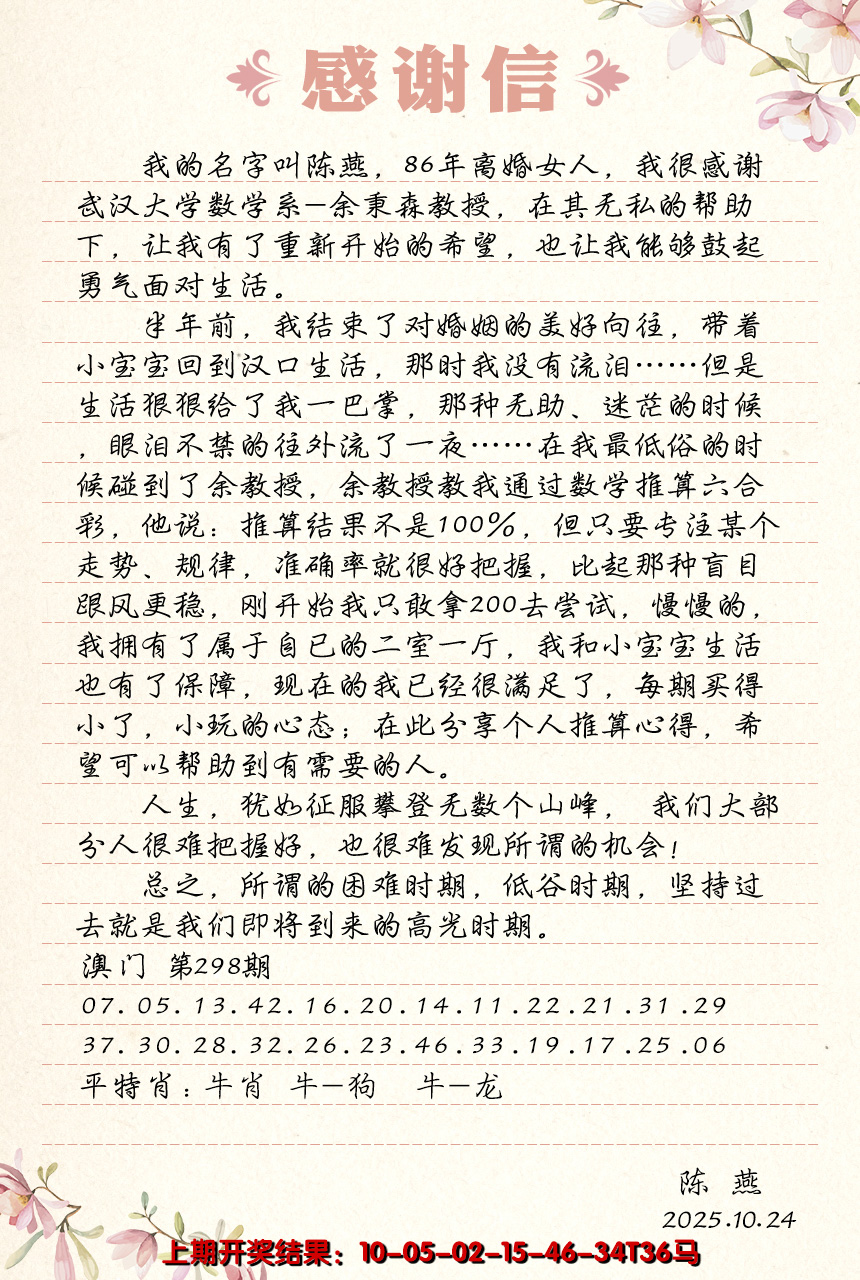 感谢信
我的名字叫陈燕，86年离婚女人，我很感谢
武汉大学数学系—余秉森教授，在其无私的帮助
下，让我有了重新开始的希望，也让我能够鼓起
勇气面对生活。
半年前，我结束了对婚姻的美好向往，带着
小宝宝回到汉口生活，那时我没有流泪……但是
生活狠狠给了我一巴掌，那种无助、迷茫的时候
，眼泪不禁的往外流了一夜……在我最低俗的时
候碰到了余教授，余教授教我通过数学推算六合
彩，他说：推算结果不是100%，但只要专注某个
走势、规律，准确率就很好把握，比起那种盲目
跟风更稳，刚开始我只敢拿200去尝试，慢慢的，
我拥有了属于自已的二室一厅，我和小宝宝生活
也有了保障，现在的我已经很满足了，每期买得
小了，小玩的心态；在此分享个人推算心得，希
望可以帮助到有需要的人。
人生，犹如征服攀登无数个山峰， 我们大部
分人很难把握好，也很难发现所谓的机会！
总之，所谓的困难时期，低谷时期，坚持过
去就是我们即将到来的高光时期。
澳门 第298期
07.05.13.42.16.20.14.11.22.21.31.29
37.30.28.32.26.23.46.33.19.17.25.06
平特肖：牛肖 牛—狗 牛—龙
陈 燕
2025.10.24
上期开奖结果：10-05-02-15-46-34T36马